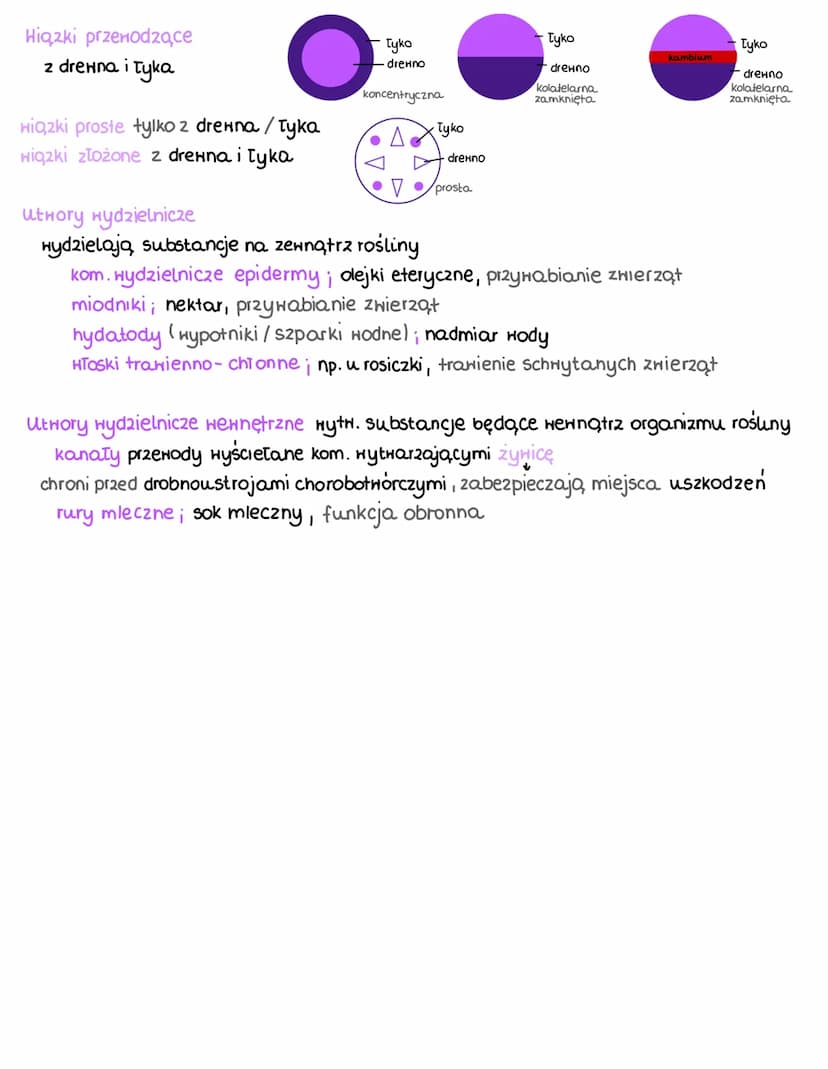 Wiązki przewodzące
z drewna i łyka
łyko
drewno
koncentryczna
łyko
drewno
kolateralna
zamknięta
łyko
kambium
drewno
kolateralna
zamknięta
wiązki proste tylko z drewna / łyka
wiązki złożone z drewna i łyka
łyko
drewno
prosta
Utwory wydzielnicze
wydzielają substancje na zewnątrz rośliny
kom. wydzielnicze epidermy ; olejki eteryczne, przywabianie zwierząt
miodniki ; nektar, przywabianie zwierząt
hydatody (wypotniki / szparki wodne) ; nadmiar wody
włoski trawienno-chłonne ; np. u rosiczki, trawienie schwytanych zwierząt
Utwory wydzielnicze wewnętrzne wytw. substancje będące wewnątrz organizmu rośliny
kanały przewody wyściełane kom. wytwarzającymi żywicę
chroni przed drobnoustrojami chorobotwórczymi, zabezpieczają miejsca uszkodzeń
rury mleczne ; sok mleczny, funkcja obronna